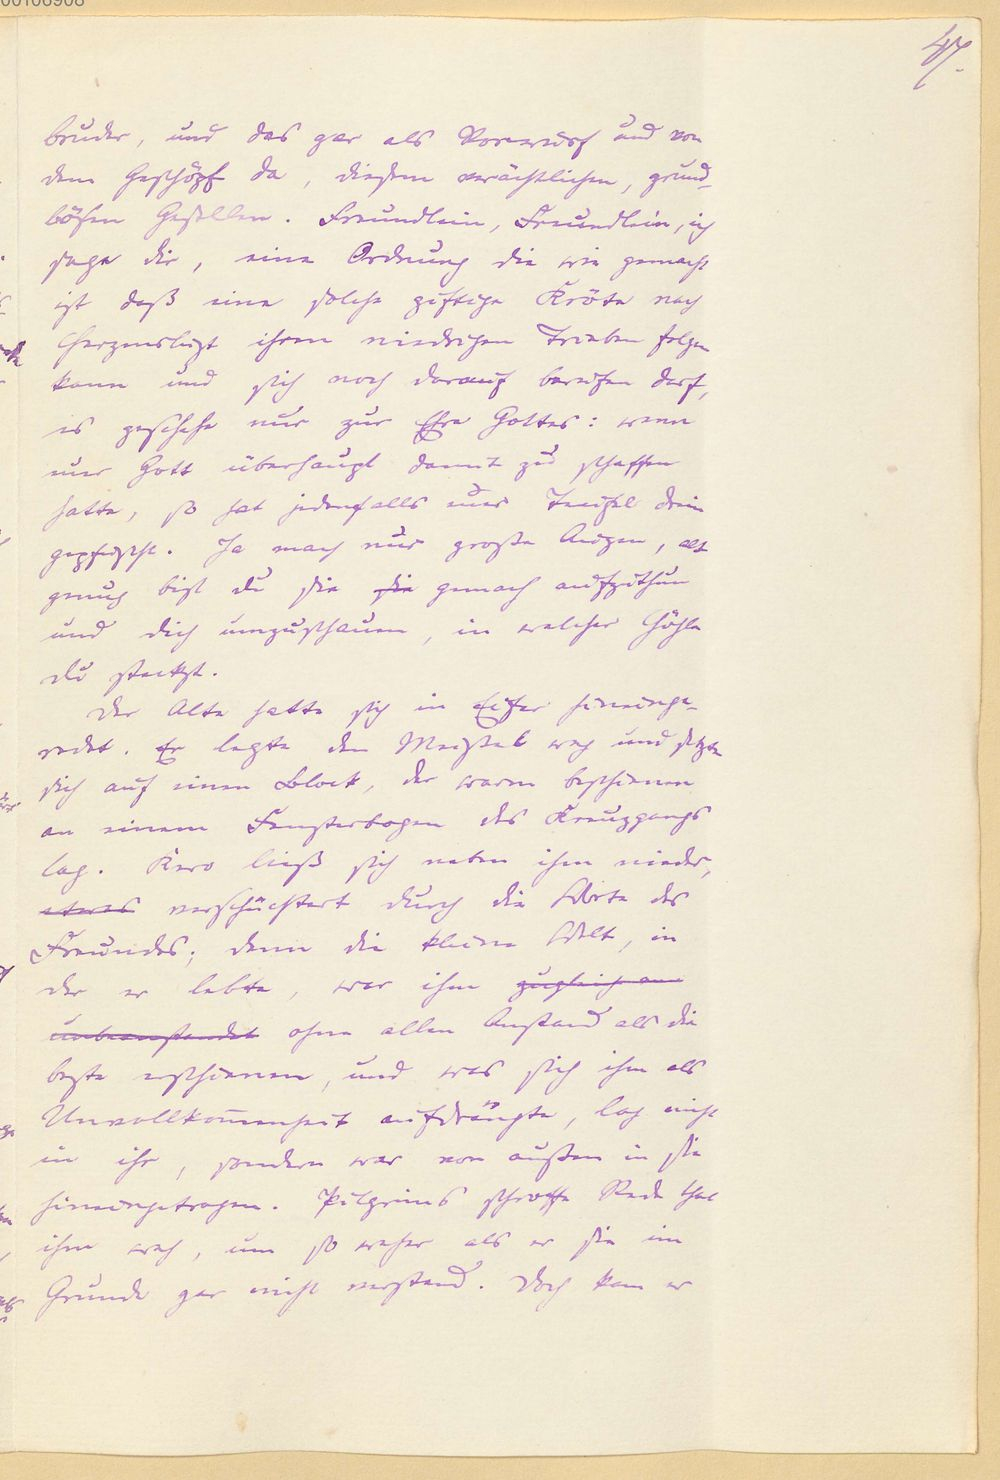 00106908
47.
bruder, und das gar als Vorwurf und von
dem Geschöpf da, diesem verächtlichen, grund-
bösen Gesellen. Freundlein, Freundlein, ich
sage dir, eine Ordnung die wie gemacht
ist daß eine solche giftige Kröte nach
Herzenslust ihren niedrigen Trieben folgen
kann und sich noch darauf berufen darf,
es geschehe nur zur Ehre Gottes: wenn
nur Gott überhaupt damit zu schaffen
hatte, so hat jedenfalls der Teufel drein
gepfuscht. Ja mach nur große Augen, alt
genug bist du sie sie gemach aufzuthun
und dich umzuschauen, in welcher Höhle
du steckst.
Der Alte hatte sich in Eifer hineinge-
redet. Er legte den Meißel weg und setzte
sich auf einen Block, der warm beschienen
an einem Fensterbogen des Kreuzgangs
lag. Kero ließ sich neben ihm nieder,
etwas verschüchtert durch die Worte des
Freundes; denn die kleine Welt, in
der er lebte, war ihm zugleich
unbeanstandet ohne allen Anstand als die
beste erschienen, und was sich ihm als
Unvollkom̅enheit aufdrängte, lag nicht
in ihr, sondern war von außen in sie
hineingetragen. Pilgrims schroffe Rede that
ihm weh, um so weher als er sie im
Grunde gar nicht verstand. Doch kam er